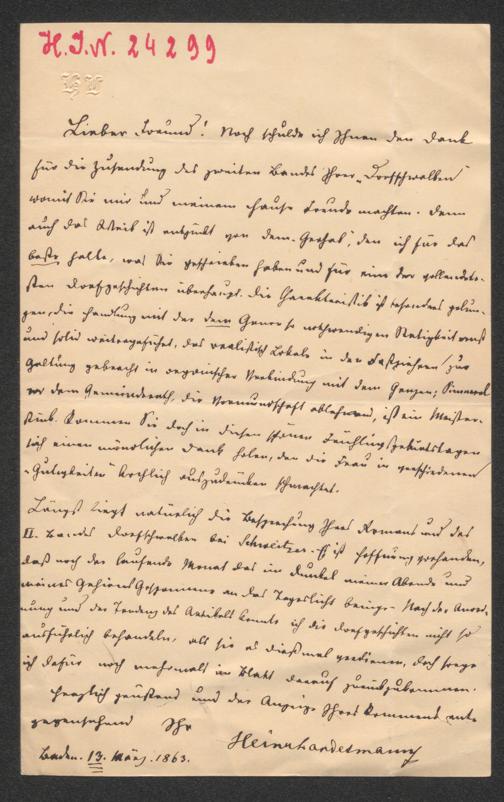 H.I.N. 24299
Lieber Freund! Noch schulde ich Ihnen den Dank
für die Zusendung des zweiten Bandes Ihrer „Dorfschwalben"
womit Sie mir und meinem Hause Freude machten. Denn
auch das Weib ist entzückt von dem, den ich für das
beste halte, was Sie geschrieben haben und für eine der vollendet-
sten Dorfgeschichten überhaupt. Die Charakteristik ist besonders gelun-
gen, die Handlung mit der dem Genre so nothwendigen Stetigkeit ernst
und solid weitergeführt, das realistisch Lokale in den zur
Geltung gebracht in organischer Verbindung mit dem Ganzen,
vor dem Gemeinderath, die Vormundschaft ablehnend, ist ein Meister-
stück. Kommen Sie doch in diesen schönen Frühlings
sich einen mündlichen Dank holen, den die Frau in verschiedenen
„Gutigkeiten" köchlich auszudrücken schmachtet.
Längst liegt natürlich die Besprechung Ihres Romans und des
II. Bandes Dorfschwalben bei Schweitzer. Es ist Hoffnung vorhanden,
daß noch der laufende Monat das im Dunkel meiner Abende und
meines Gehirns Gesponnene an das Tageslicht bringe. Nach der Anord-
nung und der Tendenz des Artikels konnte ich die Dorfgeschichten nicht so
ausführlich behandeln, als sie es dießmal verdienen, doch sorge
ich dafür noch mehrmals im Blatt darauf zurückzukommen.
Herzlich grüßend und der Anzeige Ihres Kommens ent-
gegensehend Ihr
Heinr. Landesmann
Baden. 13. März. 1863.